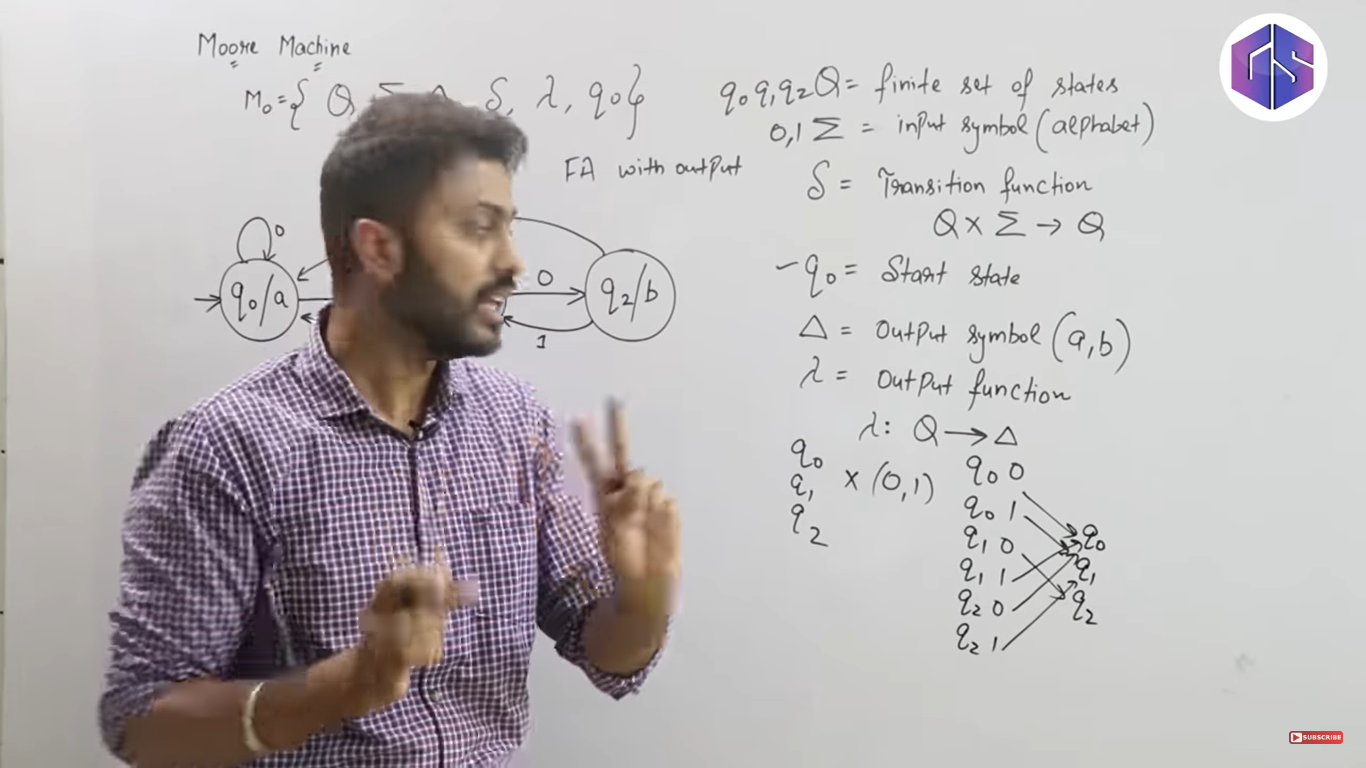 Moore Machine
M₀ = { Q, Σ, δ, λ, q₀}
FA with output
0
q₀/a
0
q₂/b
1
q₀ q₁ q₂ Q = finite set of states
0,1 Σ = input symbol (alphabet)
δ = Transition function
Q × Σ → Q
- q₀ = Start state
Δ = Output symbol (a,b)
λ = Output function
λ: Q → Δ
q₀
q₁
q₂
× (0,1)
q₀ 0
q₀ 1
q₁ 0
q₁ 1
q₂ 0
q₂ 1
q₀
q₁
q₂
GS
SUBSCRIBE